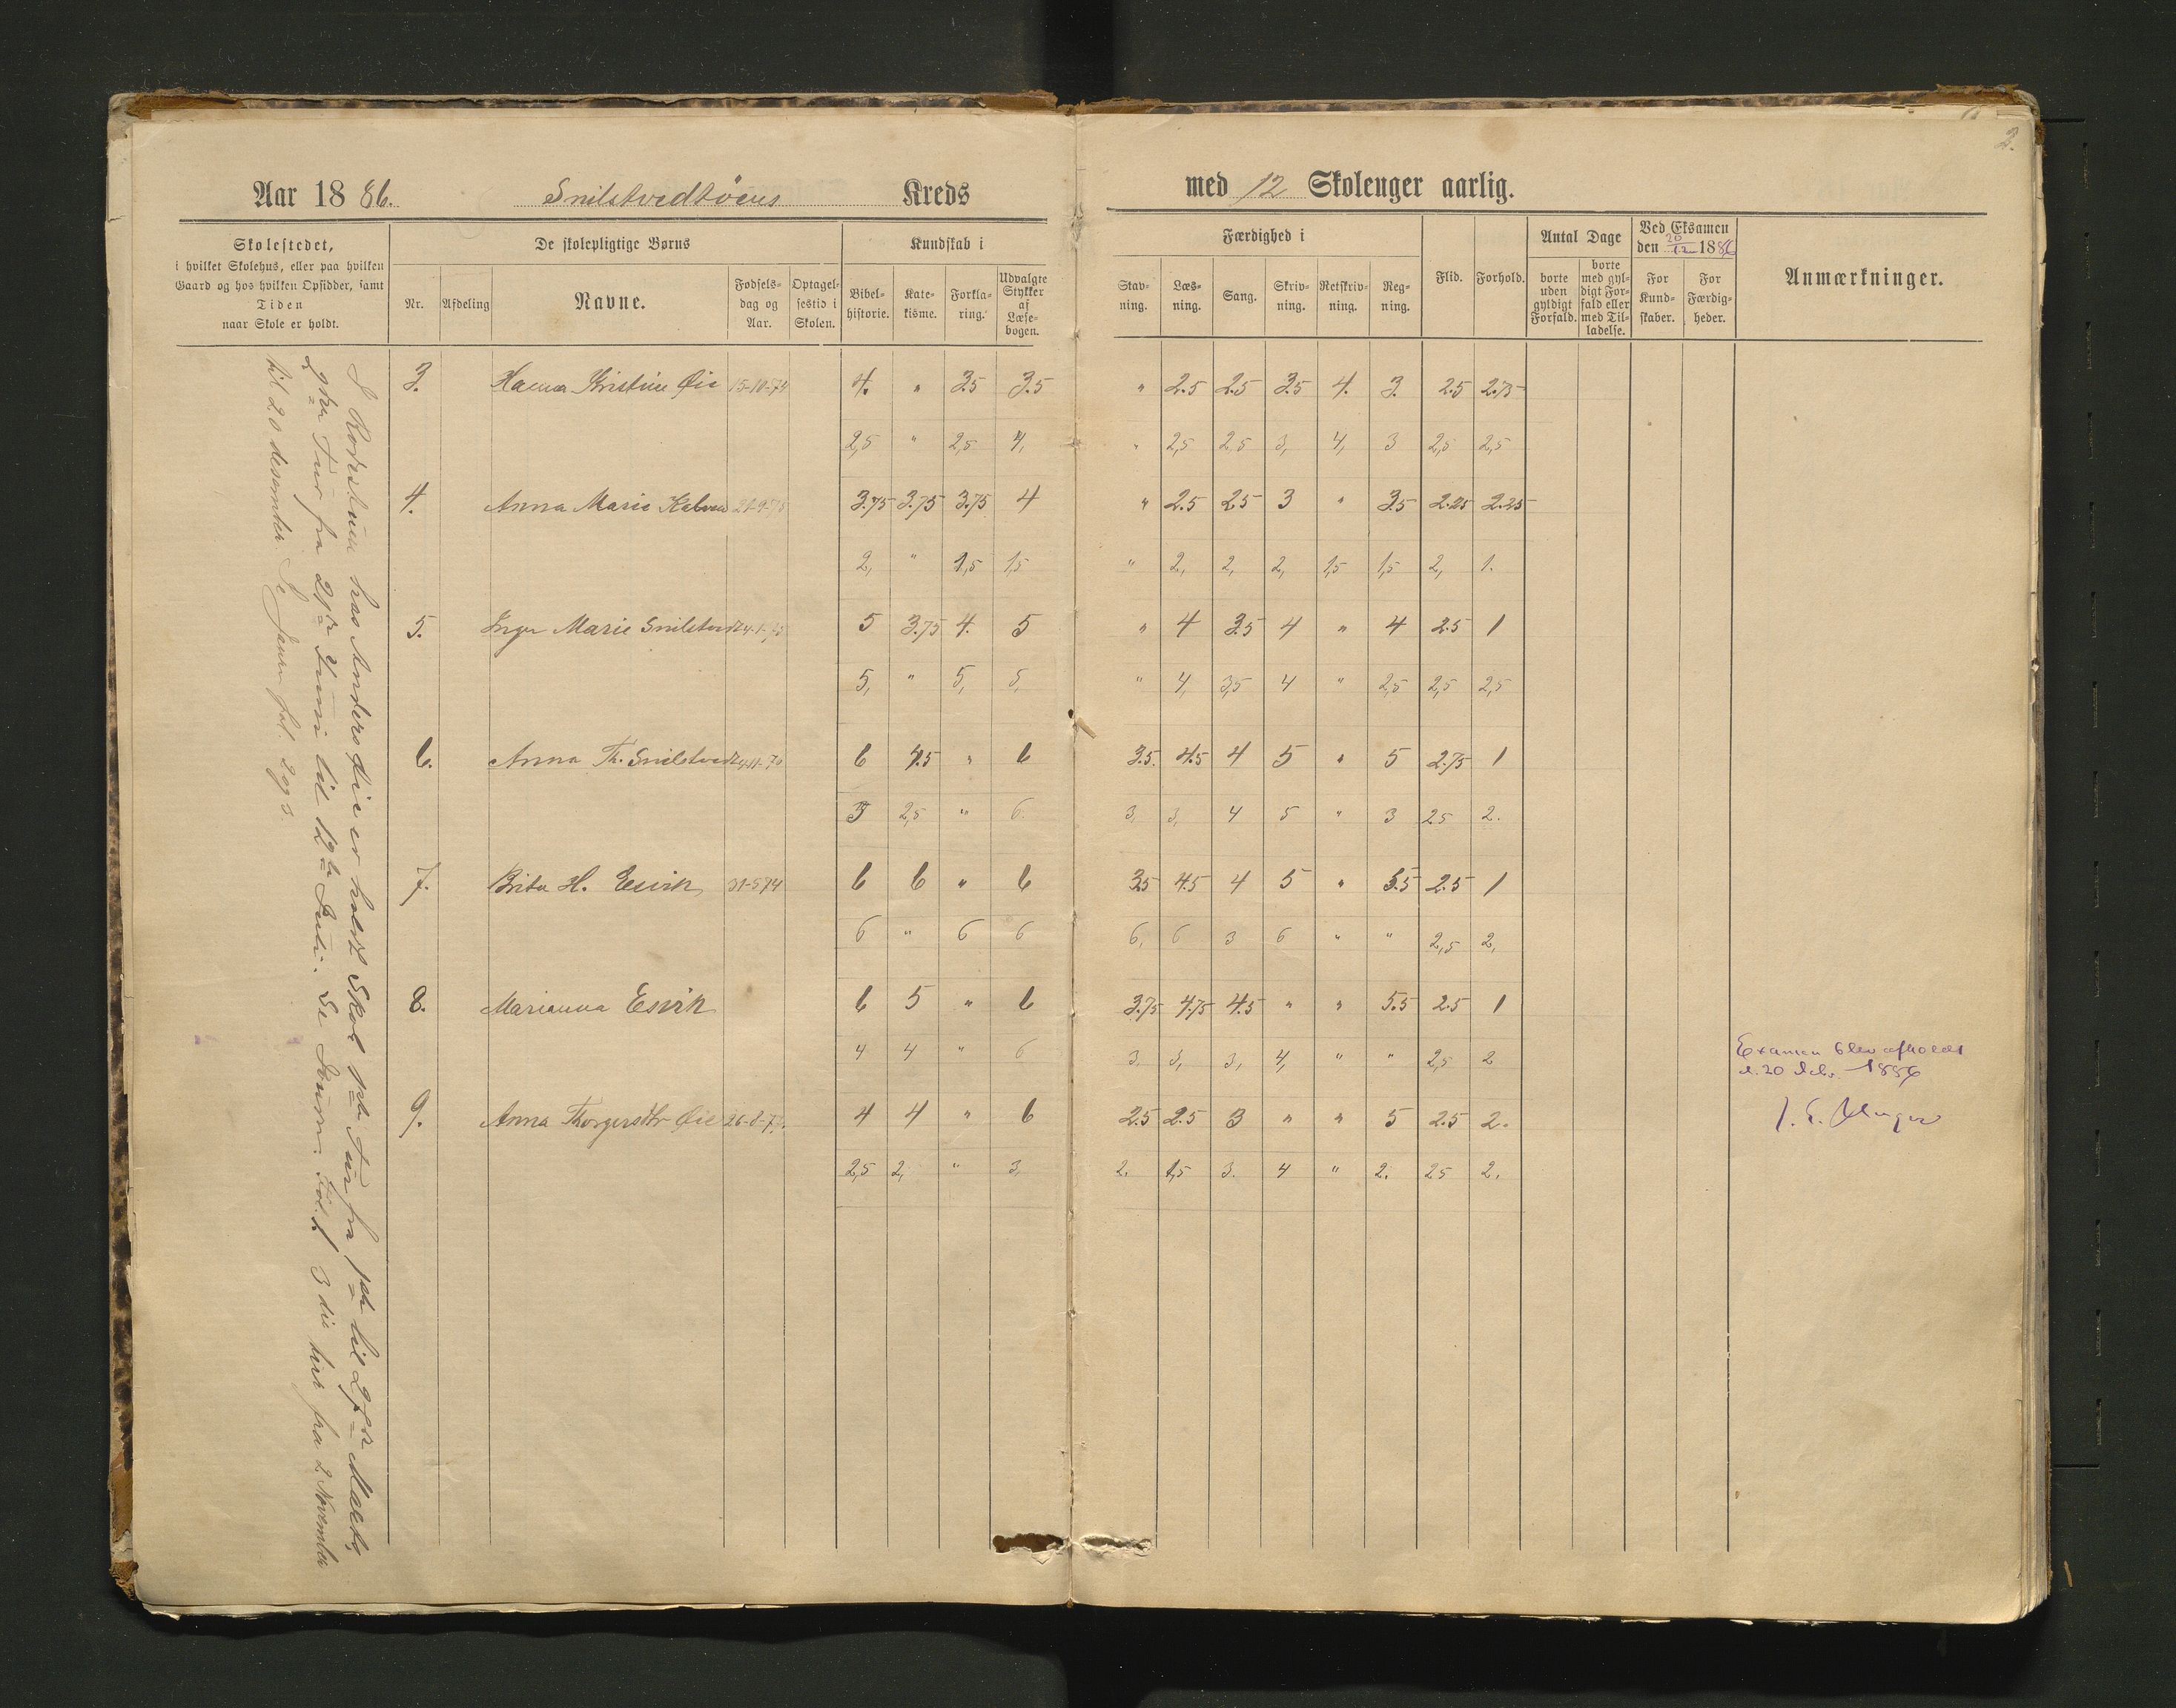 2.
Aar 1886. Snilstvedtöens Kreds
med 12 Skolenger aarlig.
Skolestedet,
i hvilket Skolehus, eller paa hvilken
Gaard og hos hvilken Opsidder, samt
Tiden
naar Skole er holdt.
De skolepligtige Børns
Nr. Afdeling Navne. Fødsels-dag og Aar. Optagel-sestid i Skolen.
Kundskab i
Bibel-historie. Kate-kisme. Forkla-ring. Udvalgte Stykker af Læse-bogen.
Færdighed i
Stav-ning. Læs-ning. Sang. Skriv-ning. Retskriv-ning. Reg-ning.
Flid. Forhold.
Antal Dage
borte uden gyldigt Forfald. borte med gyl-digt For-fald eller med Til-ladelse.
Ved Eksamen
den 20/12 1886
For Kund-skaber. For Færdig-heder.
Anmærkninger.
has Anders Øie er holdt Skole 1ste Tur fra til Marts,
Tur fra 21de Juni til 12te Juli. Se 3die tur fra 2 November
til 20 desember. Se
3. Hanna Kristine Øie 15-10-74 4. " 3.5 3.5 " 2.5 2.5 3.5 4. 3. 2.5 2.75
2,5 " 2,5 4, " 2,5 2,5 3, 4, 3 2,5 2,5
4. Anna Marie 3.75 3.75 3.75 4 " 2.5 2.5 3 " 3.5 2.25 2.25
2, " 1,5 1,5 " 2, 2, 2, 1,5 1,5 2, 1.
5. Inger Marie Snilstvedt 5 3.75 4. 5 " 4 3.5 4 " 4 2.5 1
5, " 5, 5, " 4, 3,5 4 " 2,5 2,5 2,5
6. Anna Th. Snilstvedt 6 4.5 " 6 3.5. 4.5 4 5 " 5 2.75 1
5 2,5 " 6. 3, 3, 4 5 " 3 2.5 2.
7. Brita H. Esvik 31-5 74 6 6 " 6 3.5 4.5 4 5 " 5.5 2.5 1
6 " 6 6 6, 6 3 6 " " 2,5 2,
8. Marianna Esvik 6 5 " 6 3.75 4.75 4.5 " " 5.5 2.5 1
4 4 " 6 3, 3, 3, 4, " " 2,5 2
9. Anna Thorgersdtr Øie 4 4 " 6 2.5 2.5 3 " " 5 2.5 2.
2,5 2, " 3, 2. 1,5 3. 4 " 2. 2.5 2.
Examen blev afholdt
d. 20 1886